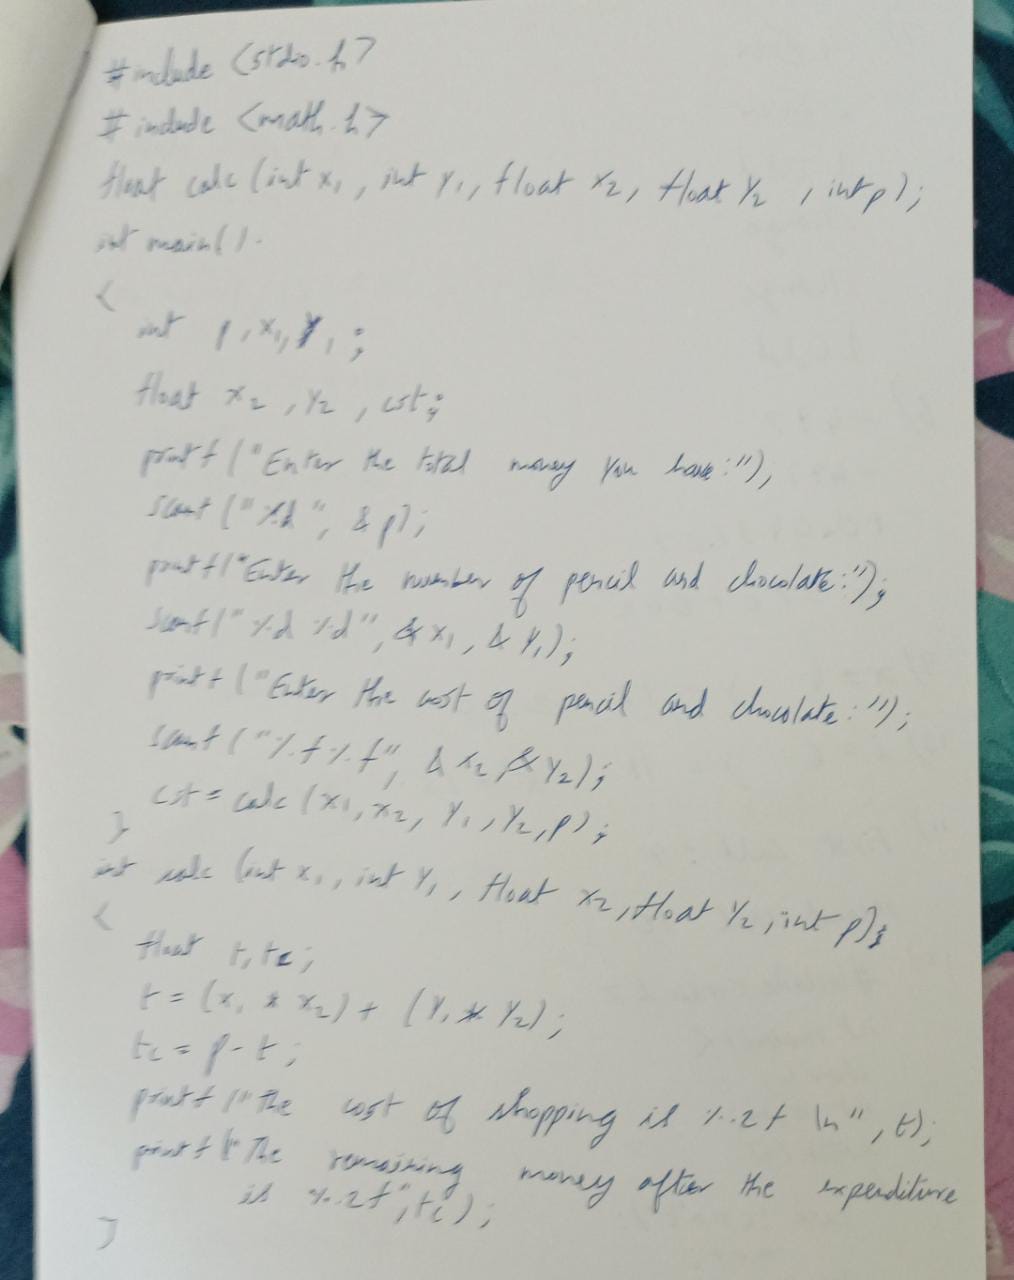 #include <stdio.h>
#include <math.h>
float calc (int x₁, int y₁, float x₂, float y₂, int p);
int main().
{
int p, x₁, y₁;
float x₂, y₂, cst;
printf ("Enter the total money you have:");
scanf ("%d", &p);
printf ("Enter the number of pencil and chocolate:");
scanf ("%d %d", &x₁, &y₁);
printf ("Enter the cost of pencil and chocolate:");
scanf ("%f %f", &x₂, &y₂);
cst = calc (x₁, x₂, y₁, y₂, p);
}
int calc (int x₁, int y₁, float x₂, float y₂, int p);
{
float t, tc;
t = (x₁ * x₂) + (y₁ * y₂);
tc = p - t;
printf ("The cost of shopping is %.2f \n", t);
printf ("The remaining money after the expenditure
is %.2f", tc);
}